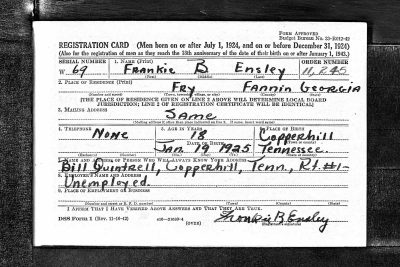 Form Approved
Budget Bureau No. 33-R012-42
REGISTRATION CARD (Men born on or after July 1, 1924, and on or before December 31, 1924)
(Also for the registration of men as they reach the 18th anniversary of the date of their birth on or after January 1, 1943.)
SERIAL NUMBER 1. NAME (Print) ORDER NUMBER
W 69 Frankie B Ensley 11,245
(First) (Middle) (Last)
2. PLACE OF RESIDENCE (Print)
Fry Fannin Georgia
(Number and street) (Town, township, village, or city) (County) (State)
[THE PLACE OF RESIDENCE GIVEN ON LINE 2 ABOVE WILL DETERMINE LOCAL BOARD
JURISDICTION; LINE 2 OF REGISTRATION CERTIFICATE WILL BE IDENTICAL]
3. MAILING ADDRESS
Same
[Mailing address if other than place indicated on line 2. If same, insert word same]
4. TELEPHONE 5. AGE IN YEARS 6. PLACE OF BIRTH
None 18 Copperhill
DATE OF BIRTH (Town or county)
Jan 19 1925 Tennessee.
(Exchange) (Number) (Mo.) (Day) (Yr.) (State or country)
7. NAME AND ADDRESS OF PERSON WHO WILL ALWAYS KNOW YOUR ADDRESS
Bill Quintrell, Copperhill, Tenn., Rt. #1-
8. EMPLOYER'S NAME AND ADDRESS
Unemployed.
9. PLACE OF EMPLOYMENT OR BUSINESS
(Number and street or R. F. D. number) (Town) (County) (State)
I AFFIRM THAT I HAVE VERIFIED ABOVE ANSWERS AND THAT THEY ARE TRUE.
DSS Form 1 (Rev. 11-16-42) (OVER) Frankie B Ensley
(Registrant's signature)